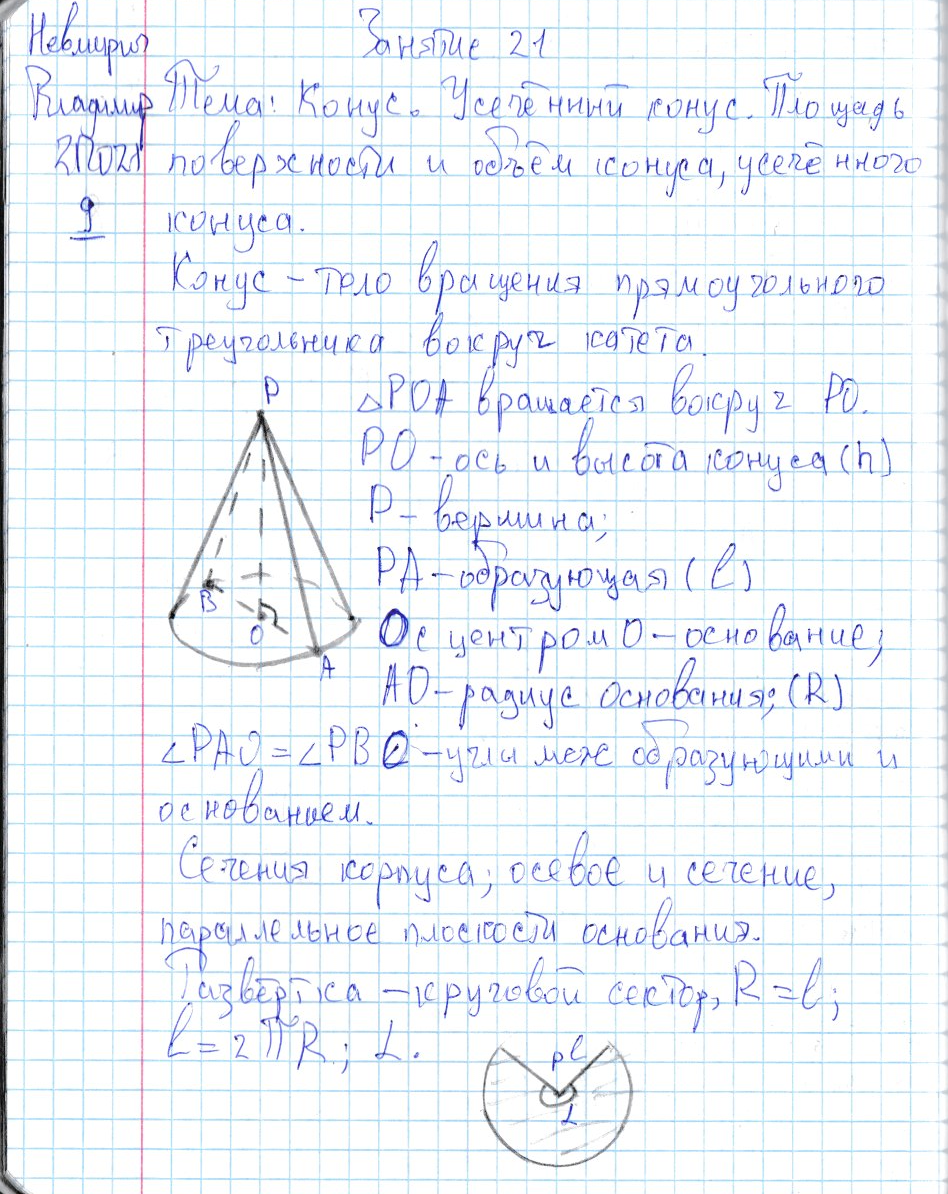 Занятие 21
Владимир Тема: Конус. Усечённый конус. Площадь
поверхности и объём конуса, усечённого
9 конуса.
Конус – тело вращения прямоугольного
треугольника вокруг катета.
P
△POA вращается вокруг PO.
PO – ось и высота конуса (h)
P – вершина;
PA – образующая (l)
B
O
A
O с центром O – основание;
AO – радиус основания; (R)
∠PAO = ∠PBO – углы меж образующими и
основанием.
Сечения корпуса; осевое и сечение,
параллельное плоскости основания.
Развёртка – круговой сектор, R = l;
l = 2πR; L.
P l
L